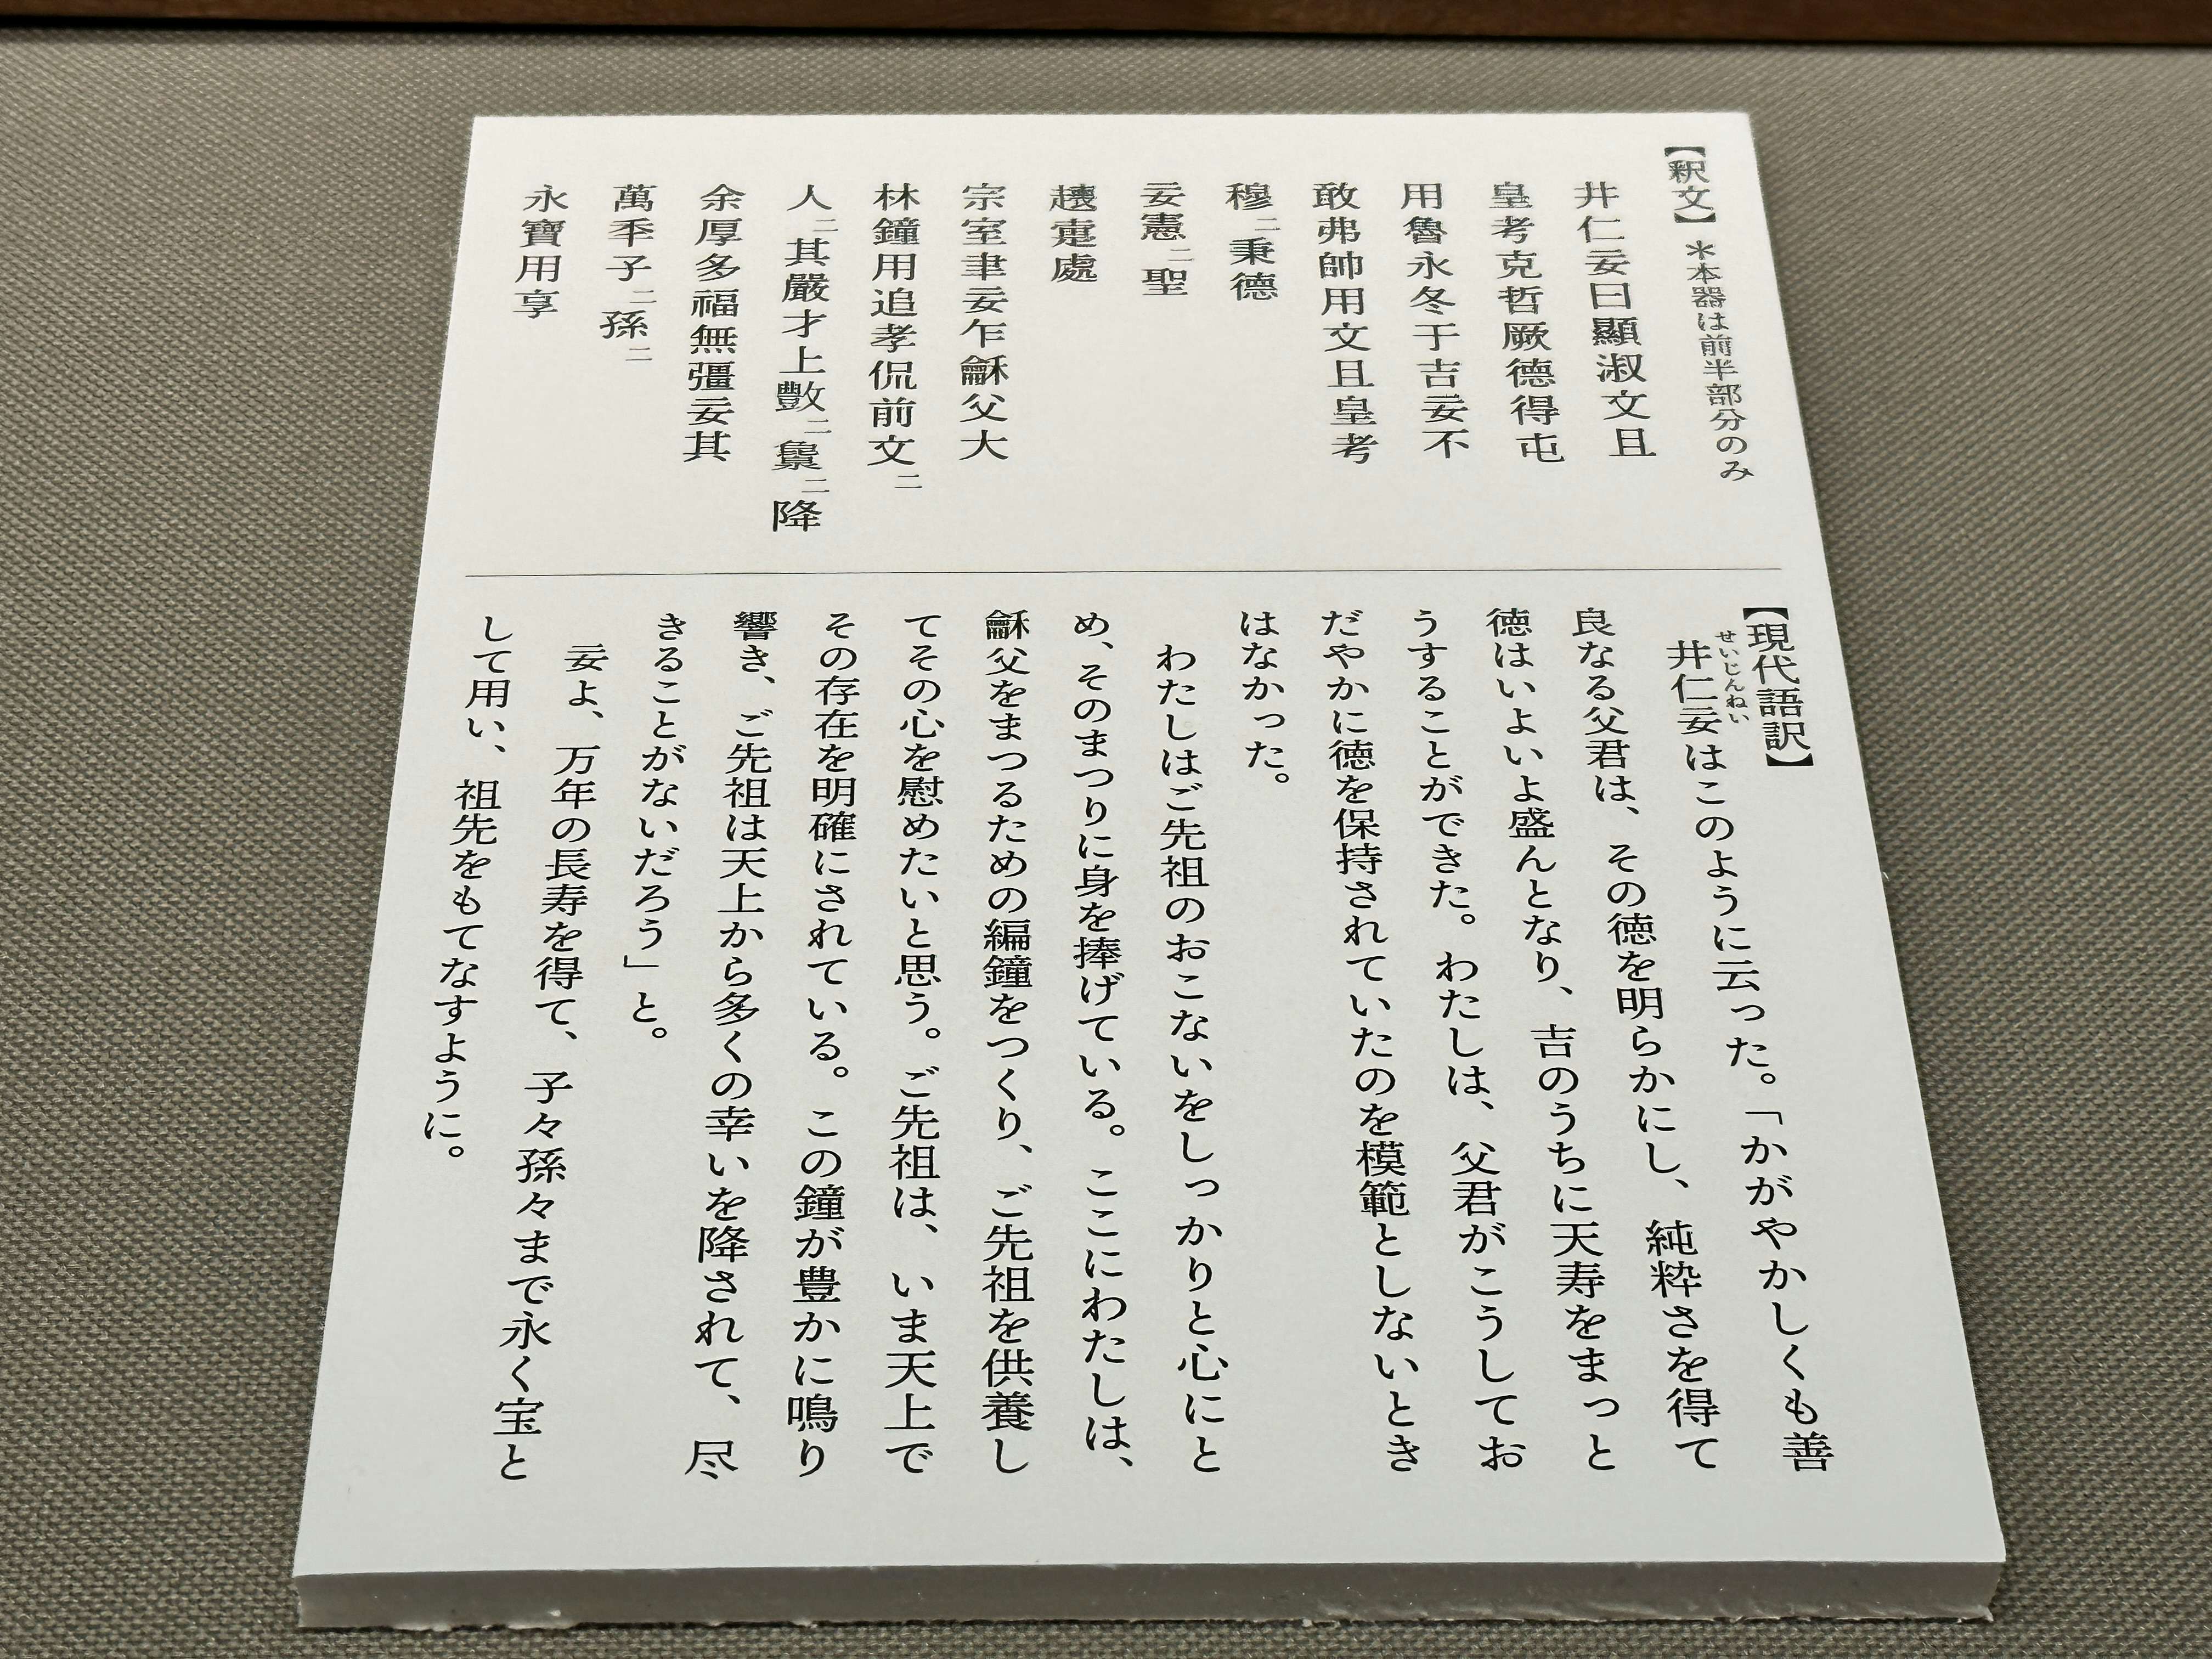 【釈文】＊本器は前半部分のみ
井仁妄曰顯淑文且
皇考克哲厥德得屯
用魯永冬于吉妄不
敢弗帥用文且皇考
穆二秉德
妄憲二聖
趩疐處
宗室肀妄乍龢父大
林鐘用追孝侃前文二
人二其嚴才上數二䲨二降
余厚多福無彊妄其
萬秊子二孫二
永寶用享
【現代語訳】
せいじんねい
井仁妄はこのように云った。「かがやかしくも善
良なる父君は、その徳を明らかにし、純粋さを得て
徳はいよいよ盛んとなり、吉のうちに天寿をまっと
うすることができた。わたしは、父君がこうしてお
だやかに徳を保持されていたのを模範としないとき
はなかった。
わたしはご先祖のおこないをしっかりと心にと
め、そのまつりに身を捧げている。ここにわたしは、
龢父をまつるための編鐘をつくり、ご先祖を供養し
てその心を慰めたいと思う。ご先祖は、いま天上で
その存在を明確にされている。この鐘が豊かに鳴り
響き、ご先祖は天上から多くの幸いを降されて、尽
きることがないだろう」と。
妄よ、万年の長寿を得て、子々孫々まで永く宝と
して用い、祖先をもてなすように。